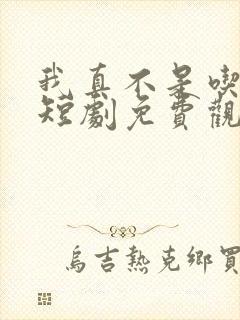 我真不是喫
短劇免費觀
烏吉熱克鄉買